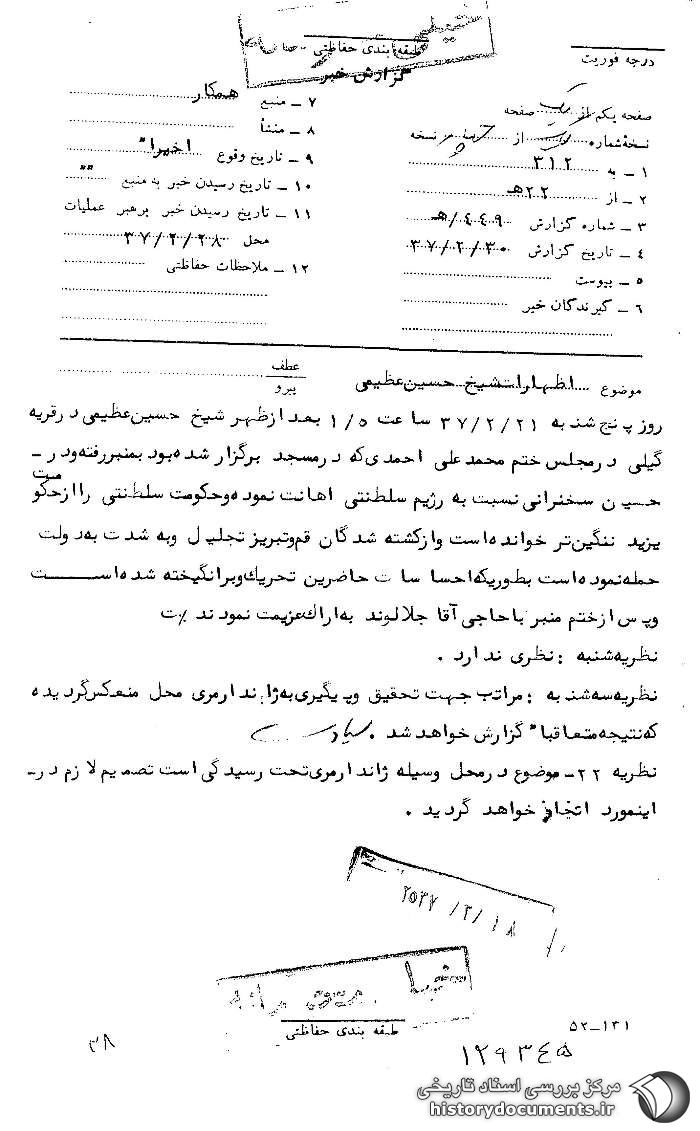 خیلی محرمانه
طبقه بندی حفاظتی
گزارش خبر
درجه فوریت
صفحه یکم از یک صفحه
نسخهٔ شماره از نسخه
۱ ــ به ۳۱۲
۲ ــ از ۲۲ هـ
۳ ــ شماره گزارش ۴۴۹/هـ
۴ ــ تاریخ گزارش ۳۷/۲/۳۰
۵ ــ پیوست
۶ ــ گیرندگان خبر
۷ ــ منبع همکار
۸ ــ منشأ
۹ ــ تاریخ وقوع اخیرا"
۱۰ ــ تاریخ رسیدن خبر به منبع ""
۱۱ ــ تاریخ رسیدن خبر برهبر عملیات
محل ۳۷/۲/۲۸
۱۲ ــ ملاحظات حفاظتی
موضوع اظهارات شیخ حسین عظیمی
عطف
پیرو
روز پنج شنبه ۳۷/۲/۲۱ ساعت ۱/۵ بعد ازظهر شیخ حسین عظیمی در قریه
گیلی در مجلس ختم محمد علی احمدی که در مسجد برگزار شده بود بمنبر رفته و در ــ
حسین سخنرانی نسبت به رژیم سلطنتی اهانت نموده و حکومت سلطنتی را از حکومت
یزید ننگین تر خوانده است و از کشته شدگان قم و تبریز تجلیل و به شدت به دولت
حمله نموده است بطوریکه احساسات حاضرین تحریک و برانگیخته شده است
و پس از ختم منبر با حاجی آقا جلالوند به اراک عزیمت نمودند
نظریه شنبه : نظری ندارد .
نظریه سه شنبه : مراتب جهت تحقیق و پیگیری به ژاندارمری محل منعکس گردیده
که نتیجه متعاقبا" گزارش خواهد شد .
نظریه ۲۲ــ موضوع در محل وسیله ژاندارمری تحت رسیدگی است تصمیم لازم در ــ
اینمورد اتخاذ خواهد گردید .
۲۵۳۷/۳/۱۸
خیلی محرمانه
طبقه بندی حفاظتی
۵۲ــ۱۳۱
۳۸
۱۲۹۳۴۵
مرکز بررسی اسناد تاریخی
historydocuments.ir